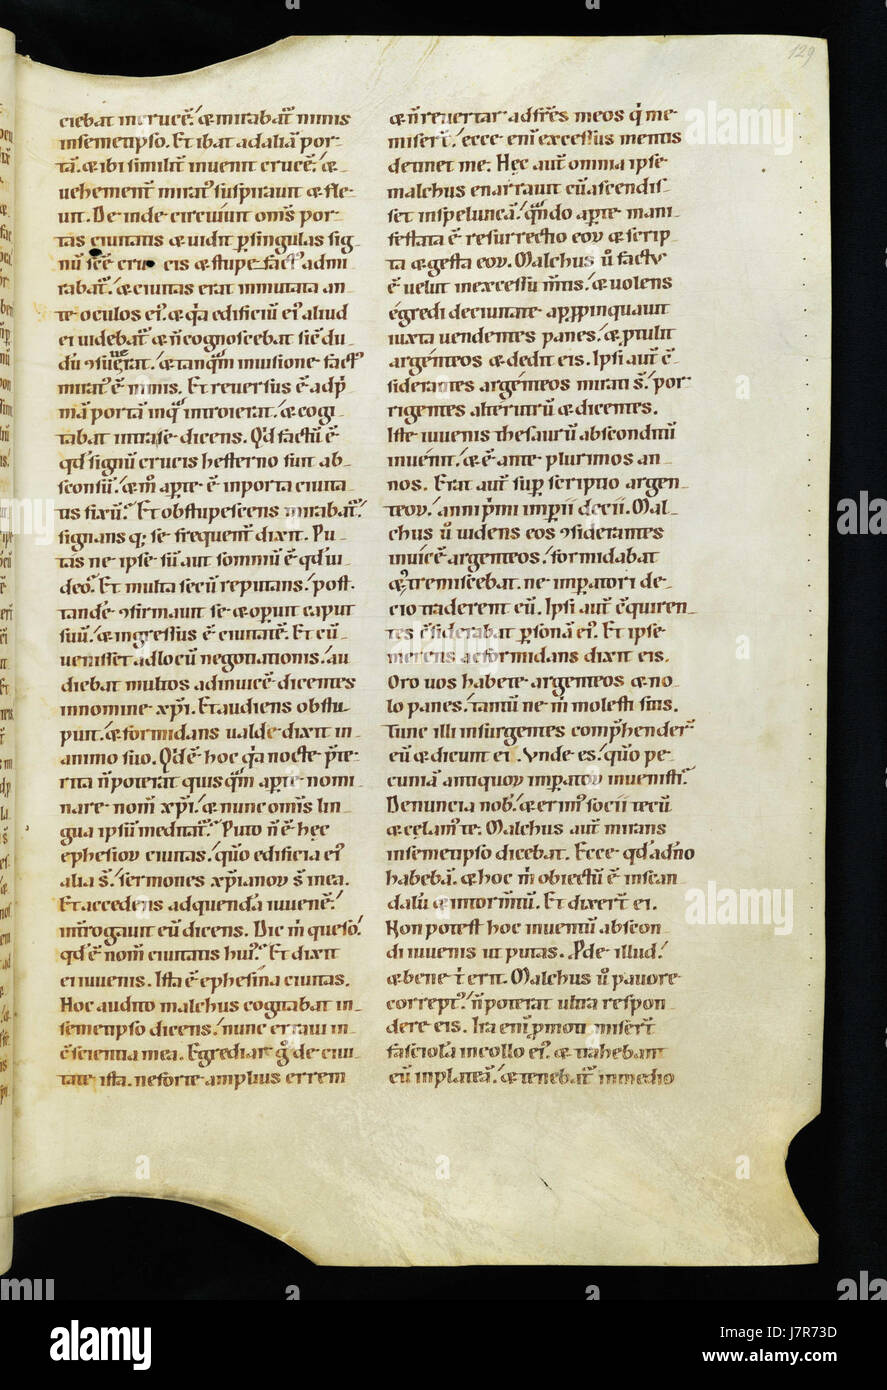 129
ciebat in cruce᷑. & mirabat᷑ nimis
insemetipso. Et ibat ad aliā por-
tā. & ibi similit᷑ inuenit cruce᷑. &
uehement᷑ mirat᷒ suspirauit & fle-
uit. De inde circuiuit om̄s por-
tas ciuitatis & uidit ꝑsingulas sig-
nū sc̄e cru cis & stupefact᷒ admi
rabat᷑. & ciuitas erat inmutata an-
te oculos ei᷒. & q̄a edificiū ei᷒ aliud
ei uidebat᷑ & n̄ cognoscebat sic̄ du-
dū ꝯsuerat. & tanquā inuisione fact᷒
mirat᷒ ē nimis. Et reuersus ē adp̄
mā portā inq̄ introierat. & cogi-
tabat intra se dicens. Qd̄ factū ē
qd̄ signū crucis hesterno fuit ab-
sconsū. & m̄ aꝑte ē inporta ciuita
tis fixū. Et obstupescens mirabat᷑.
signans q; se frequent᷑ dixit. Pu-
tas ne ipse sū aut somniū ē qd̄ ui-
deo. Et multa secū reputans. post-
tandē ꝯfirmauit se & oꝑuit caput
suū. & ingressus ē ciuitatē. Et cū
uenisset adlocū negotiationis. au
diebat multos adinuicē dicentes
innomine xp̄i. Et audiens obstu-
puit. & formidans ualde dixit in
animo suo. Qd̄ ē hoc q̄a nocte p̄te-
rita n̄ poterat quis quā aꝑte nomi
nare nom̄ xp̄i. & nunc om̄is lin
gua ipsū meditat᷑. Puto n̄ ē hęc
ephesiorum ciuitas. quō edificia ei᷒
alia s̄. sermones xp̄ianorum s̄ mea.
Et accedens ad quendā iuuenē.
int᷑rogauit eū dicens. Dic m̄ queso.
qd̄ ē nom̄ ciuitatis hui᷒. Et dixit
ei iuuenis. Ista ē ephesina ciuitas.
Hoc audito malchus cogitabat in-
semetipso dicens. nunc erraui in-
ꝯscientia mea. Egrediar g̊ de ciui
tate ista. ne forte amplius errem
& n̄ reuertar adfr̄es meos q̄ me-
miser̄t. ecce eni᷑ excessus mentis
detinet me. Hęc aut᷑ omnia ipse
malchus enarrauit cū ascendis-
set inspeluncā. quando aꝑte mani-
festata ē resurrectio eorum & scrip-
ta & gesta eorum. Malchus ū factus
ē uelut inexcessū m̄tis. & uolens
ęgredi deciuitate appropinquauit
iuxta uendentes panes. & ptulit
argenteos & dedit eis. Ipsi aut᷑ ꝯ-
siderantes argenteos mirati s̄. por-
rigentes alterutrū & dicentes.
Iste iuuenis thesaurū absconditū
inuenit. & ē ante plurimos an
nos. Erat aut᷑ suꝑ scriptio argen-
teorum. anni p̄mi imꝑii decii. Mal-
chus ū uidens eos ꝯsiderantes
inuicē argenteos. formidabat
& ꝯtremiscebat. ne imꝑatori de-
cio traderent eū. Ipsi aut᷑ ꝯquiren-
tes ꝯsiderabat ꝑsonā ei᷒. Et ipse
metuens ac formidans dixit eis.
Oro uos habete argenteos & no-
lo panes. tantū ne m̄ molesti sitis.
Tunc illi insurgentes comp̄hender᷑
eū & dicunt ei. Vnde es. quō pe-
cuniā antiquorum imꝑatorum inuenisti.
Denuncia nob᷒. & erim᷒ socii tecū
& cęlam᷒ te. Malchus aut᷑ mirans
insemetipso dicebat. Ecce qd̄ ad n̄o
habebā. & hoc m̄ obiectū ē inscan
dalū & intorm̄tū. Et dixer̄t ei.
Non potest hoc inuentū abscon
di iuuenis ut putas. Pde illud.
& bene t᷑ erit. Malchus ū pauore
corrept᷒. n̄ poterat ultra respon-
dere eis. Ira eni᷑ ꝑmoti miser̄t
fasciolā incollo ei᷒. & trahebant
eū inplateā. & tenebat᷑ in medio
alamy
Image ID: J7R73D
www.alamy.com